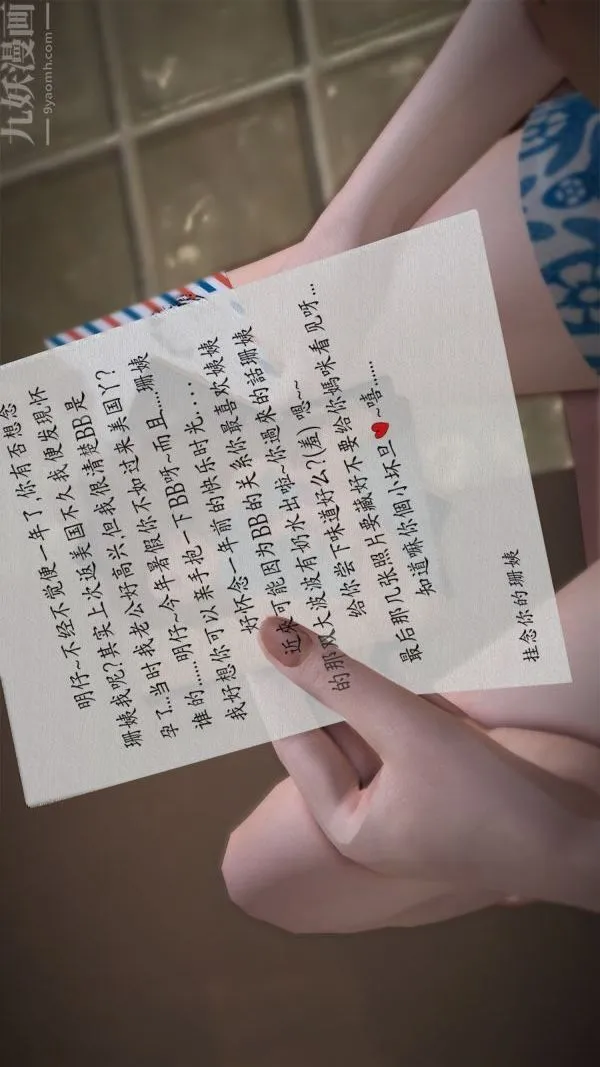 九妖漫画
9yaomh.com
明仔~不经不觉便一年了,你有否想念
珊姨我呢?其实上次返美国不久我便发现怀
孕了...当时我老公好高兴,但我很清楚BB是
谁的......明仔~今年暑假你不如过来美国丫?
我好想你可以亲手抱一下BB呀~而且....珊姨
好怀念一年前的快乐时光....
近來可能因为BB的关系你最喜欢姨姨
的那双大波波有奶水出啦~你過來的話珊姨
给你尝下味道好么?(羞) 嗯~~
最后那几张照片要藏好不要给你媽咪看见呀...
知道嘛你個小坏旦~嘻......
挂念你的珊姨